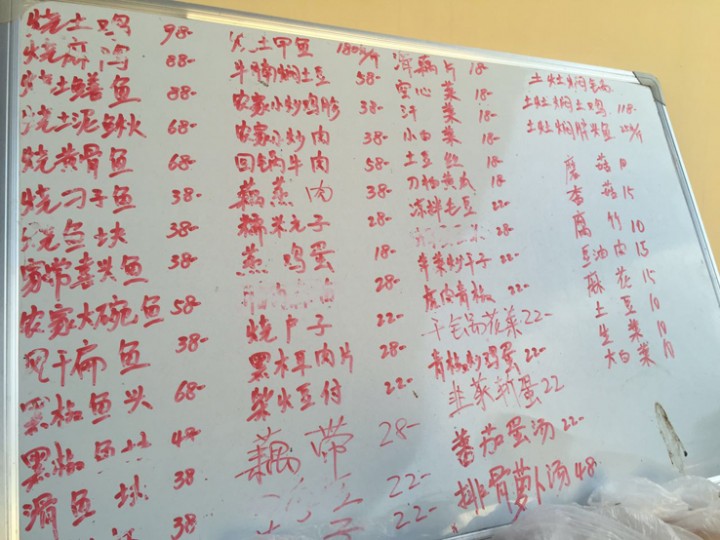 烧土鸡 98-
烧麻鸭 88-
土鳝鱼 88-
烧土泥鳅 68-
烧黄骨鱼 68-
烧刁子鱼 38-
烧鱼块 38-
家常喜头鱼 38-
农家大碗鱼 58-
干扁鱼 38-
黑椒鱼头 68-
黑椒鱼 48-
滑鱼块 38
38
土甲鱼
牛腩焖土豆 58-
农家小炒鸡胗 38-
农家小炒肉 38-
回锅牛肉 58-
藕蒸肉 38-
糯米元子 28-
蒸鸡蛋 18-
28-
烧卢子 22-
黑木耳肉片 28-
柴火豆付 22-
藕带 28-
22-
22-
藕片 18-
空心菜 18-
汗菜 18-
小白菜 18-
土豆丝 18-
刀拍黄瓜 18-
凉拌毛豆 22-
28-
炒干子 22-
青椒 22-
干锅花菜 22-
青椒炒鸡蛋 22-
韭菜鸡蛋 22
蕃茄蛋汤 22-
排骨萝卜汤 48
土灶焖
土灶焖土鸡 118-
土灶焖胖头鱼
蘑菇 10
香菇 15
腐竹 10
豆油肉 15
麻花 15
土豆 10
生菜 10
大白菜 10